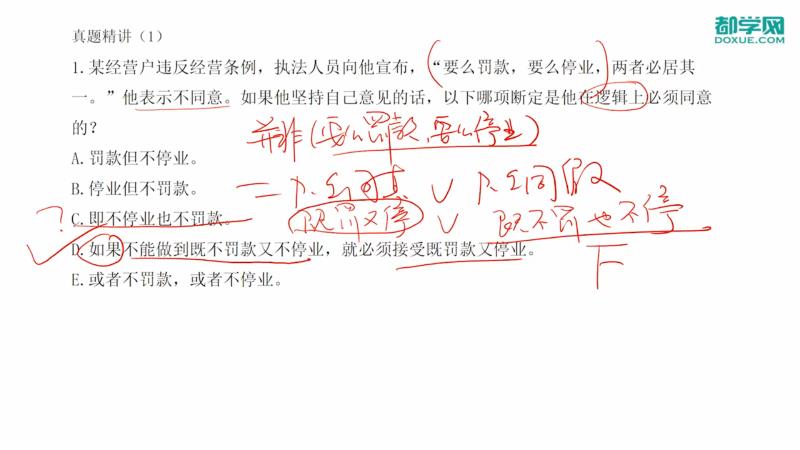 都学网
DOXUE.COM
真题精讲（1）
1.某经营户违反经营条例，执法人员向他宣布，“要么罚款，要么停业，两者必居其
一。”他表示不同意。如果他坚持自己意见的话，以下哪项断定是他在逻辑上必须同意
的？
并非(要么罚款,要么停业)
A.罚款但不停业。
B.停业但不罚款。
= 只全同真 ∨ 只全同假
? C.即不停业也不罚款。
既罚又停 ∨ 既不罚也不停
D.如果不能做到既不罚款又不停业，就必须接受既罚款又停业。
E.或者不罚款，或者不停业。